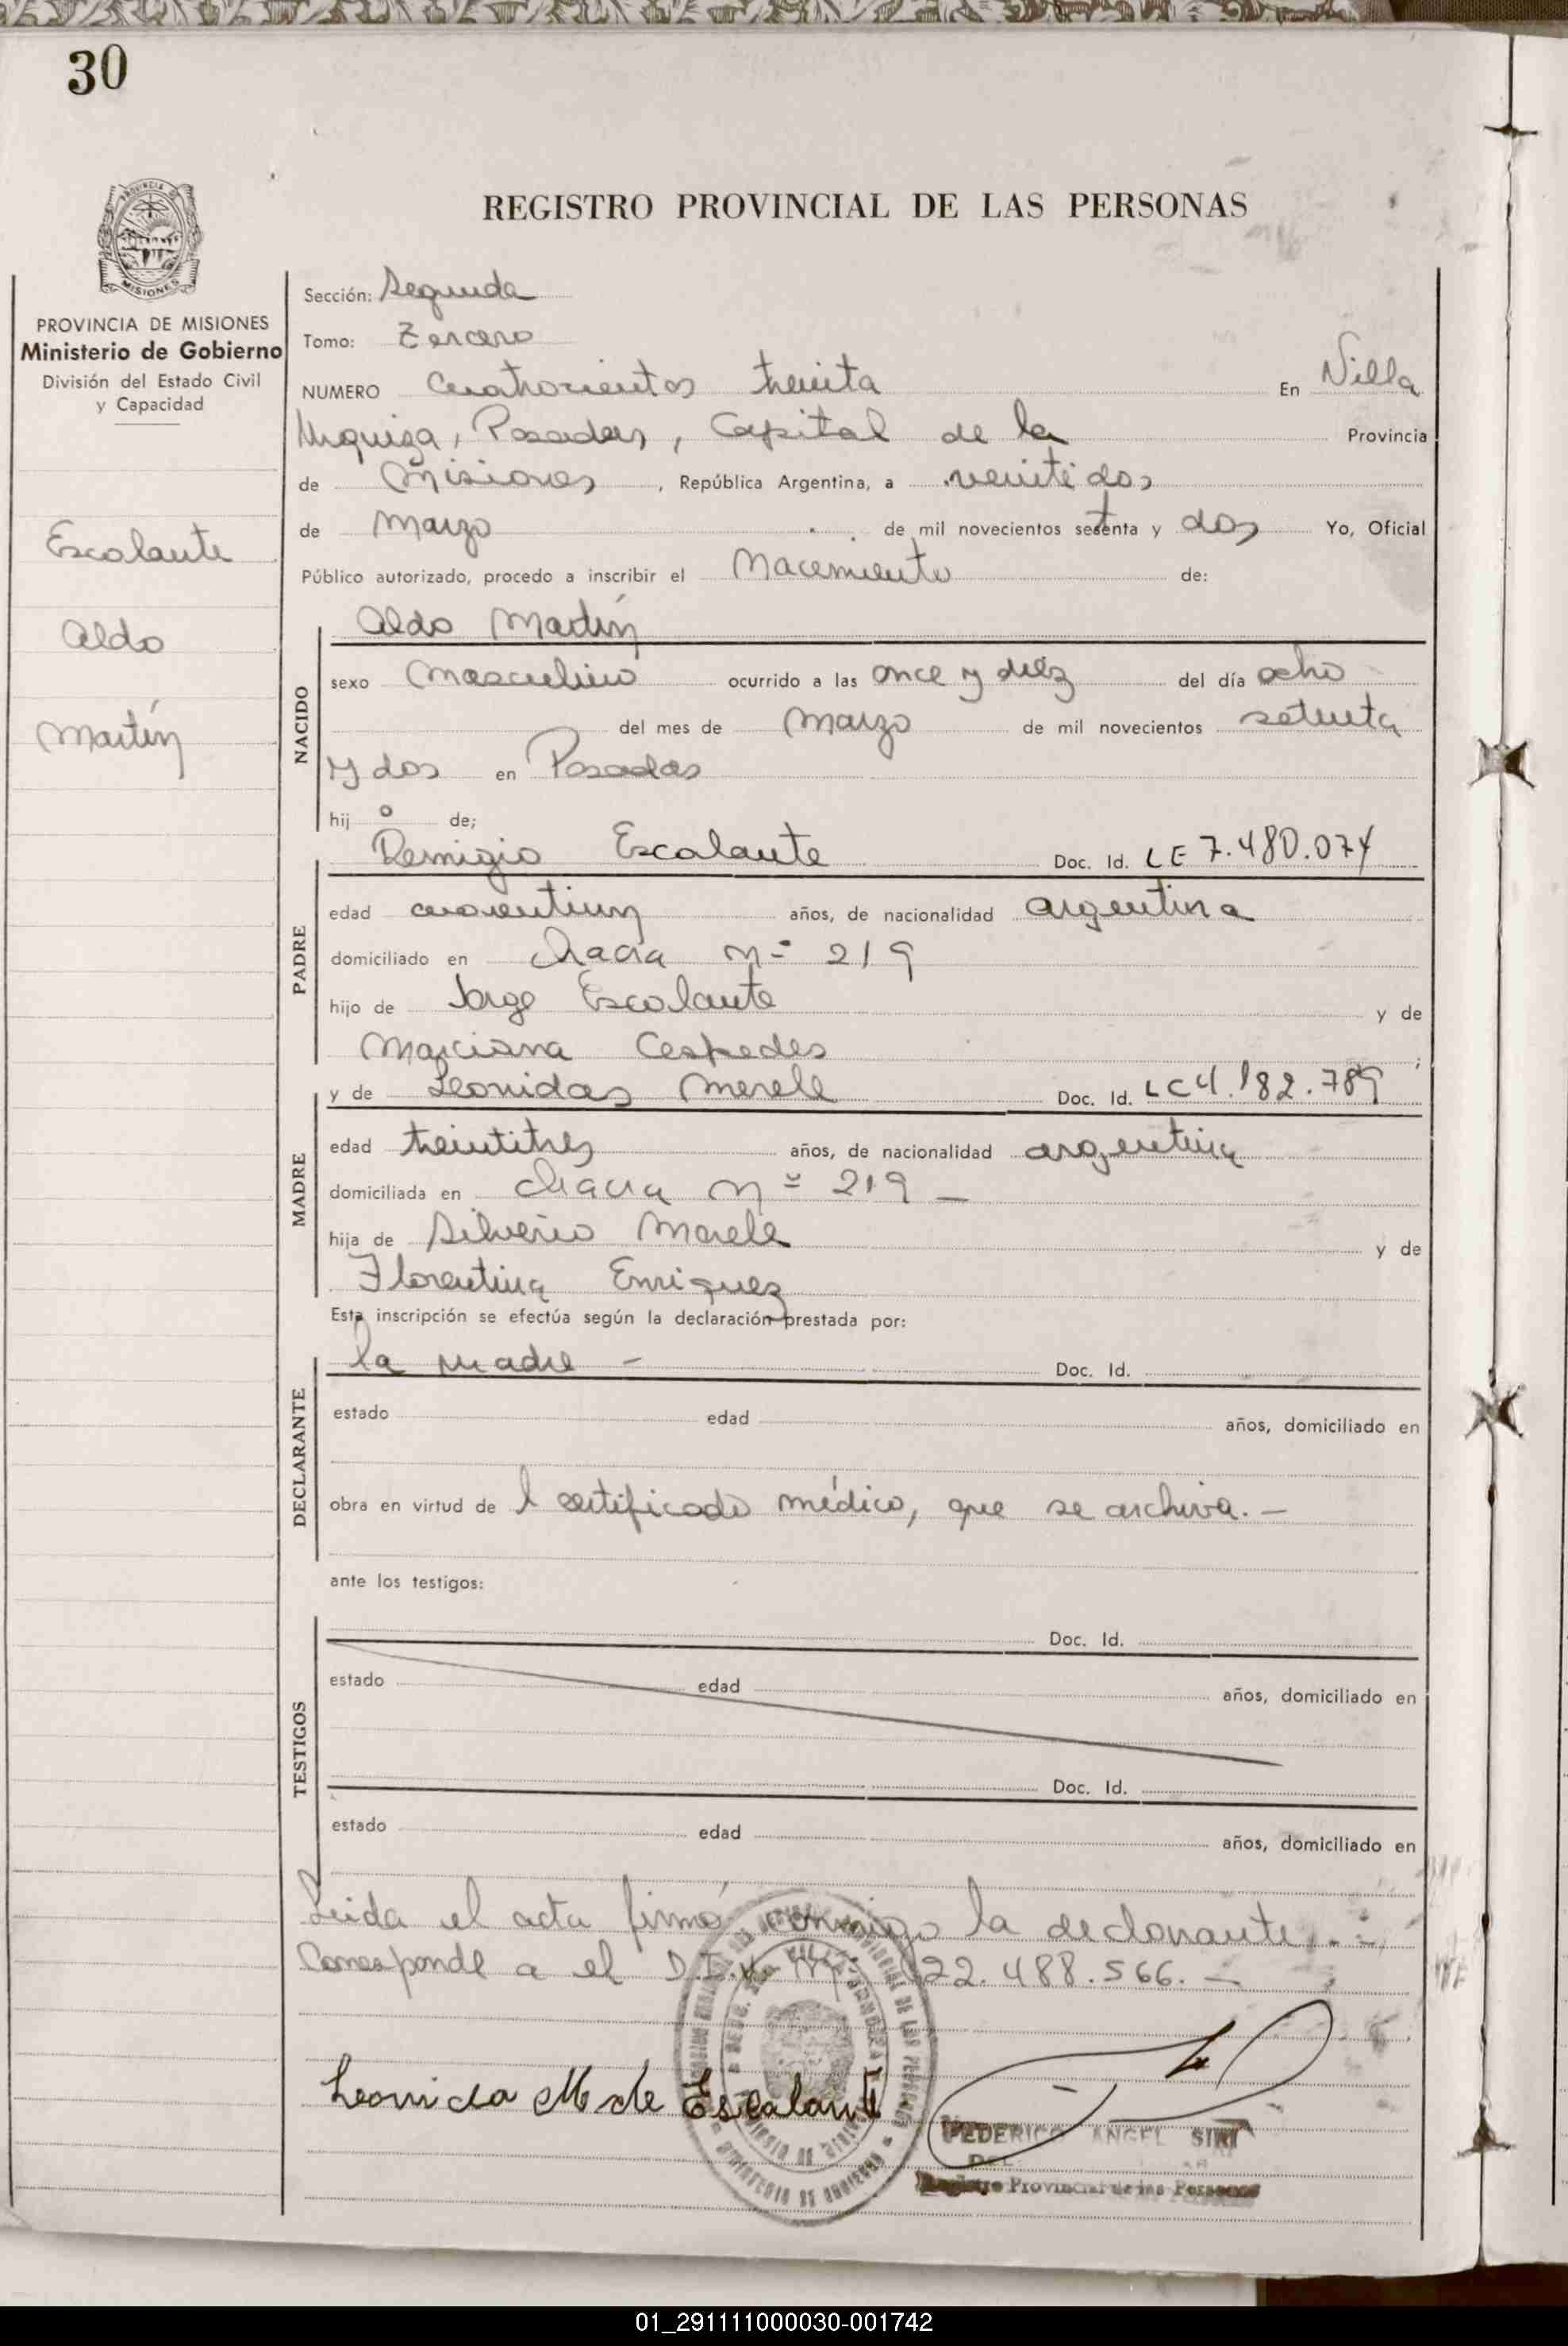 30
REGISTRO PROVINCIAL DE LAS PERSONAS
PROVINCIA DE MISIONES
Ministerio de Gobierno
División del Estado Civil
y Capacidad
Escalante
Aldo
Martín
Sección: Segunda
Tomo: Tercero
NUMERO Cuatrocientos treinta En Villa
Urquiza, Posadas, Capital de la Provincia
de Misiones, República Argentina, a veintidos
de Marzo de mil novecientos setenta y dos Yo, Oficial
Público autorizado, procedo a inscribir el Nacimiento de:
Aldo Martín
NACIDO
sexo Masculino ocurrido a las once y diez del día ocho
del mes de Marzo de mil novecientos setenta
y dos en Posadas
hij o de;
Remigio Escalante Doc. Id. LE 7.480.074
PADRE
edad cuarentiun años, de nacionalidad argentina
domiciliado en chacra nº 219
hijo de Jorge Escalante y de
Marciana Cespedes ;
y de Leonidas Merele Doc. Id. LC 4.182.789
MADRE
edad treintitres años, de nacionalidad argentina
domiciliada en chacra nº 219 —
hija de Silverio Merele y de
Florentina Enriquez
Esta inscripción se efectúa según la declaración prestada por:
la madre - Doc. Id.
DECLARANTE
estado edad años, domiciliado en
obra en virtud de l certificado médico, que se archiva. -
ante los testigos:
Doc. Id.
TESTIGOS
estado edad años, domiciliado en
Doc. Id.
estado edad años, domiciliado en
Leida el acta firmó conmigo la declarante. -
Corresponde a el D.I.M. Nº 22.488.566. -
Leonida M de Escalante
FEDERICO ANGEL SIRI
DEL
Registro Provincial de las Personas
01_291111000030-001742